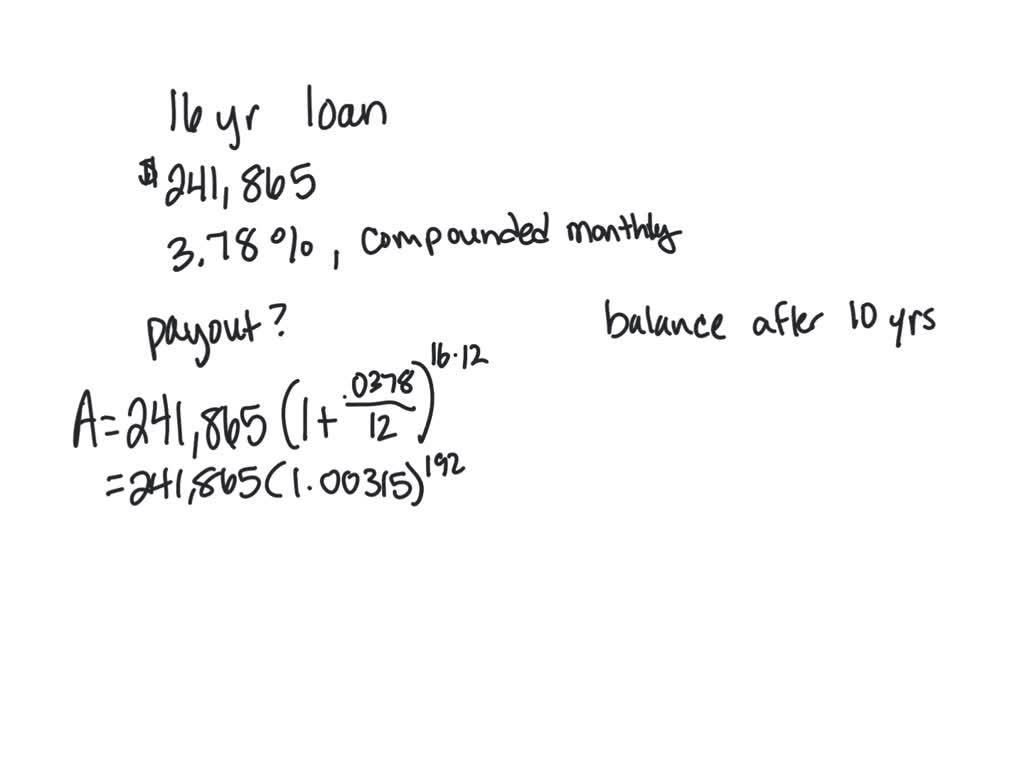 16 yr loan
$241,865
3.78%, compounded monthly
payout?
balance after 10 yrs
A = 241,865 (1 + .0378/12)^16·12
= 241,865 (1.00315)^192